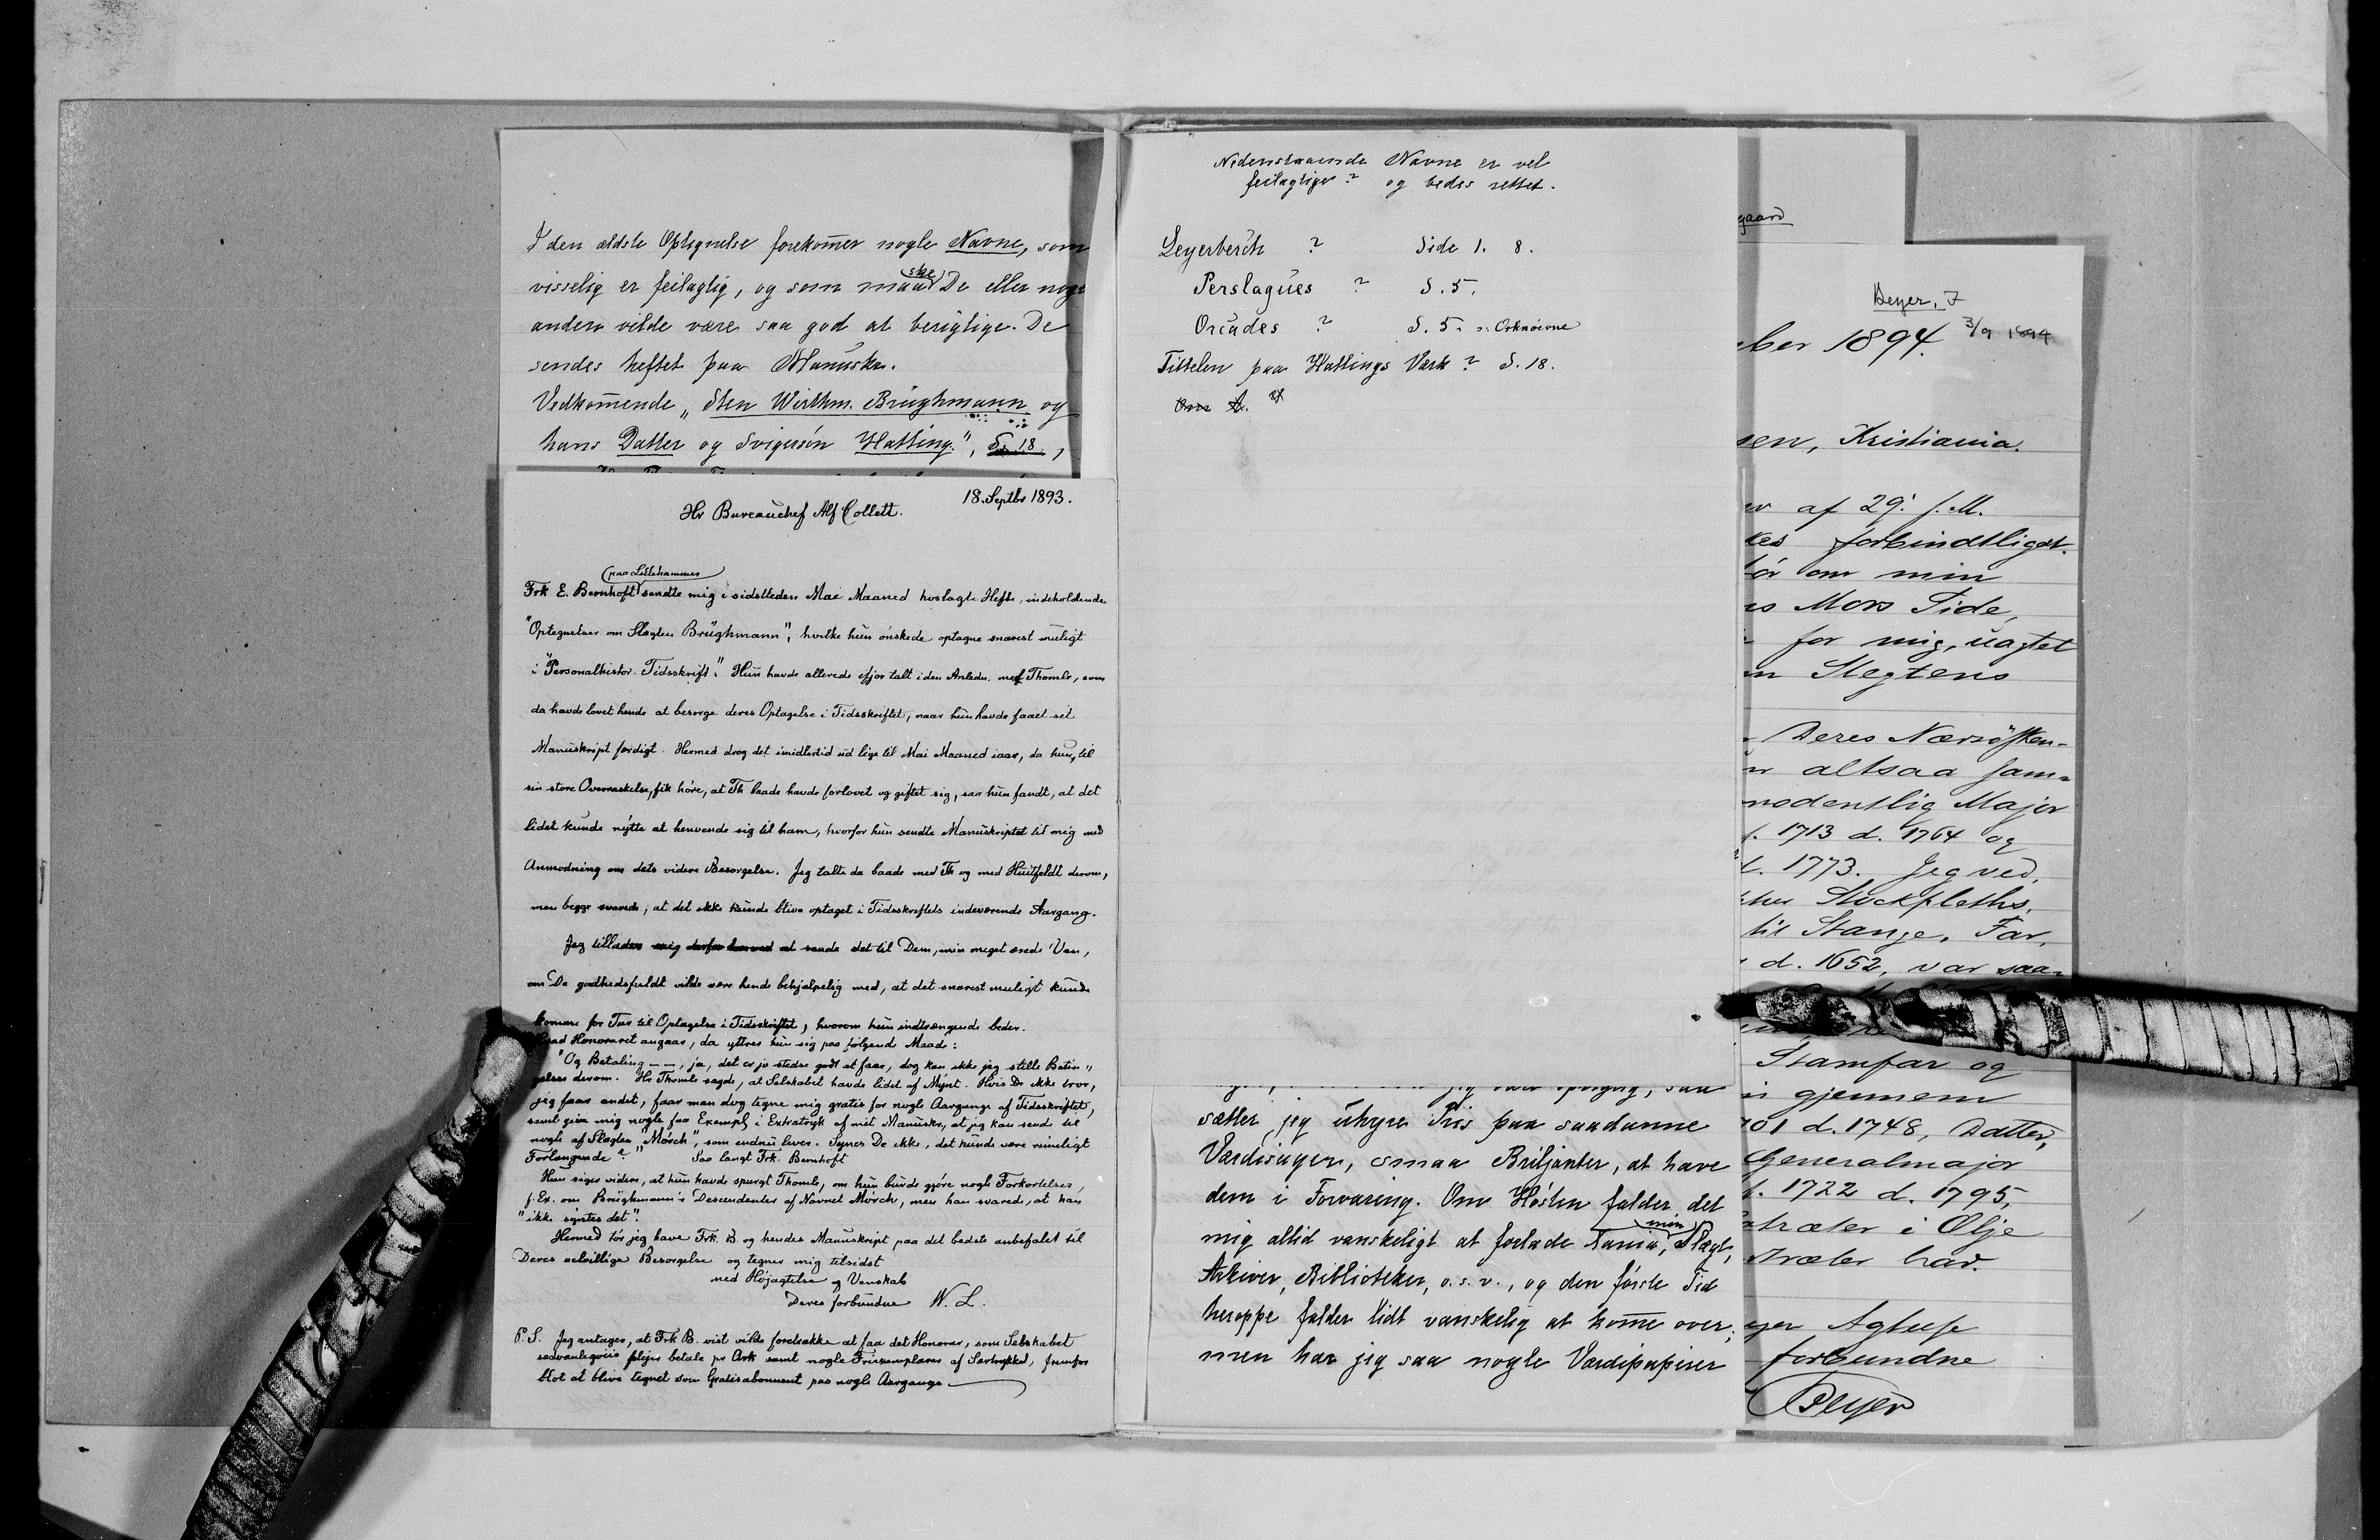 I den ældste Optegnelse forekommer nogle Navne, som
visselig er feilaglig, og som maaske De eller noge
anden vilde være saa god at berigtige. De
sendes heftet paa Manuskr.
Vedkommende „Sten Wirthm. Brüghmann og
hans Datter og Svigersön Hatting.", S. 18.,
18. Septbr 1893.
Hr Bureauchef Alf Collett.
Frk E. Bernhoft (paa Lillehammer) sendte mig i sidstleden Mai Maaned hoslagte Hefte, indeholdende
"Optegnelser om Slægten Brüghmann", hvilke hun önskede optagne snarest muligt
i "Personalhistor. Tidsskrift". Hun havde allerede ifjor talt i den Anledn. med Thomle, som
da havde lovet hende at besørge deres Optagelse i Tidsskriftet, naar hun havde faaet sit
Manuskript færdigt. Hermed drog det imidlertid ud lige til Mai Maaned iaar, da hun, til
sin store Overraskelse, fik höre, at Th baade havde forlovet og giftet sig, saa hun fandt, at det
lidet kunde nytte at henvende sig til ham, hvorfor hun sendte Manuskriptet til mig med
Anmodning om dets videre Besørgelse. Jeg talte da baade med Th og med Huitfeldt derom,
men begge svarede, at det ikke kunde blive optaget i Tidsskriftets indeværende Aargang.
Jeg tillader mig derfor herved at sende det til Dem, min meget ærede Ven,
om De godhedsfuldt vilde være hende behjælpelig med, at det snarest muligt kunde
komme for Tur til Optagelse i Tidsskriftet, hvorom hun indtrængende beder.
Hvad Honoraret angaar, da yttrer hun sig paa følgende Maade:
"Og Betaling — —, ja, det er jo stedse godt at faae, dog kan ikke jeg stille Betin"
gelser derom. Hr Thomle sagde, at Selskabet havde lidet af Mynt. Hvis De ikke tror,
jeg faar andet, faar man dog tegne mig gratis for nogle Aargange af Tidsskriftet,
samt give mig nogle faa Exempl i Extratryk af mit Manuskr, at jeg kan sende til
nogle af Slægten "Mörch", som endnu lever. Synes De ikke, det kunde være rimeligt
Forlangende?" Saa langt Frk. Bernhoft
Hun siger videre, at hun havde spurgt Thomle, om hun burde gjøre nogle Forkortelser,
f. Ex. om Brüghmann's Descendenter af Navnet Mörch, men han svarede, at han
"ikke syntes det".
Hermed tör jeg have Frk. B. og hendes Manuskript paa det bedste anbefalet til
Deres velvillige Besørgelse og tegner mig tilsidst
med Höjagtelse og Venskab
Deres forbundne W. L.
P. S. Jeg antager, at Frk B. vist vilde foretrække at faa det Honorar, som Selskabet
sædvanligviis plejer betale pr Ark samt nogle Friexemplarer af Særtrykket, fremfor
blot at blive tegnet som Gratisabonnent paa nogle Aargange
Nedenstaaende Navne er vel
feilagtige? og bedes rettet.
Leyerberch ? Side 1. 8.
Perslagues ? S. 5.
Orcades ? S. 5. ɔ: Orknöerne
Tittelen paa Hattings Værk? S. 18.
sætter jeg uhyre Pris paa saadanne
Værdisager, smaa Briljanter, at have
dem i Forvaring. Om Hösten falder det
mig altid vanskeligt at forlade Xania, min Slægt,
Arkiver, Biblioteker, o. s. v., og den förste Tid
heroppe falder lidt vanskelig at komme over;
men har jeg saa nogle Værdipapirer
gaard
Beyer, F
3/9 1894
ber 1894.
sen, Kristiania.
af 29' f. M.
kes forbindtligst.
för om min
Mors Side,
for mig, uagtet
Slegtens
Deres Nærsösken-
altsaa sam-
modentlig Major
f. 1713 d. 1764 og
1773. Jeg ved,
Stockfleths,
til Stange. Far,
d. 1652, var saa-
Stamfar og
gjennem
701 d. 1748, Datter,
Generalmajor
f. 1722 d. 1795,
træter i Olje
træter har.
Agtelse
forbundne
Beyer